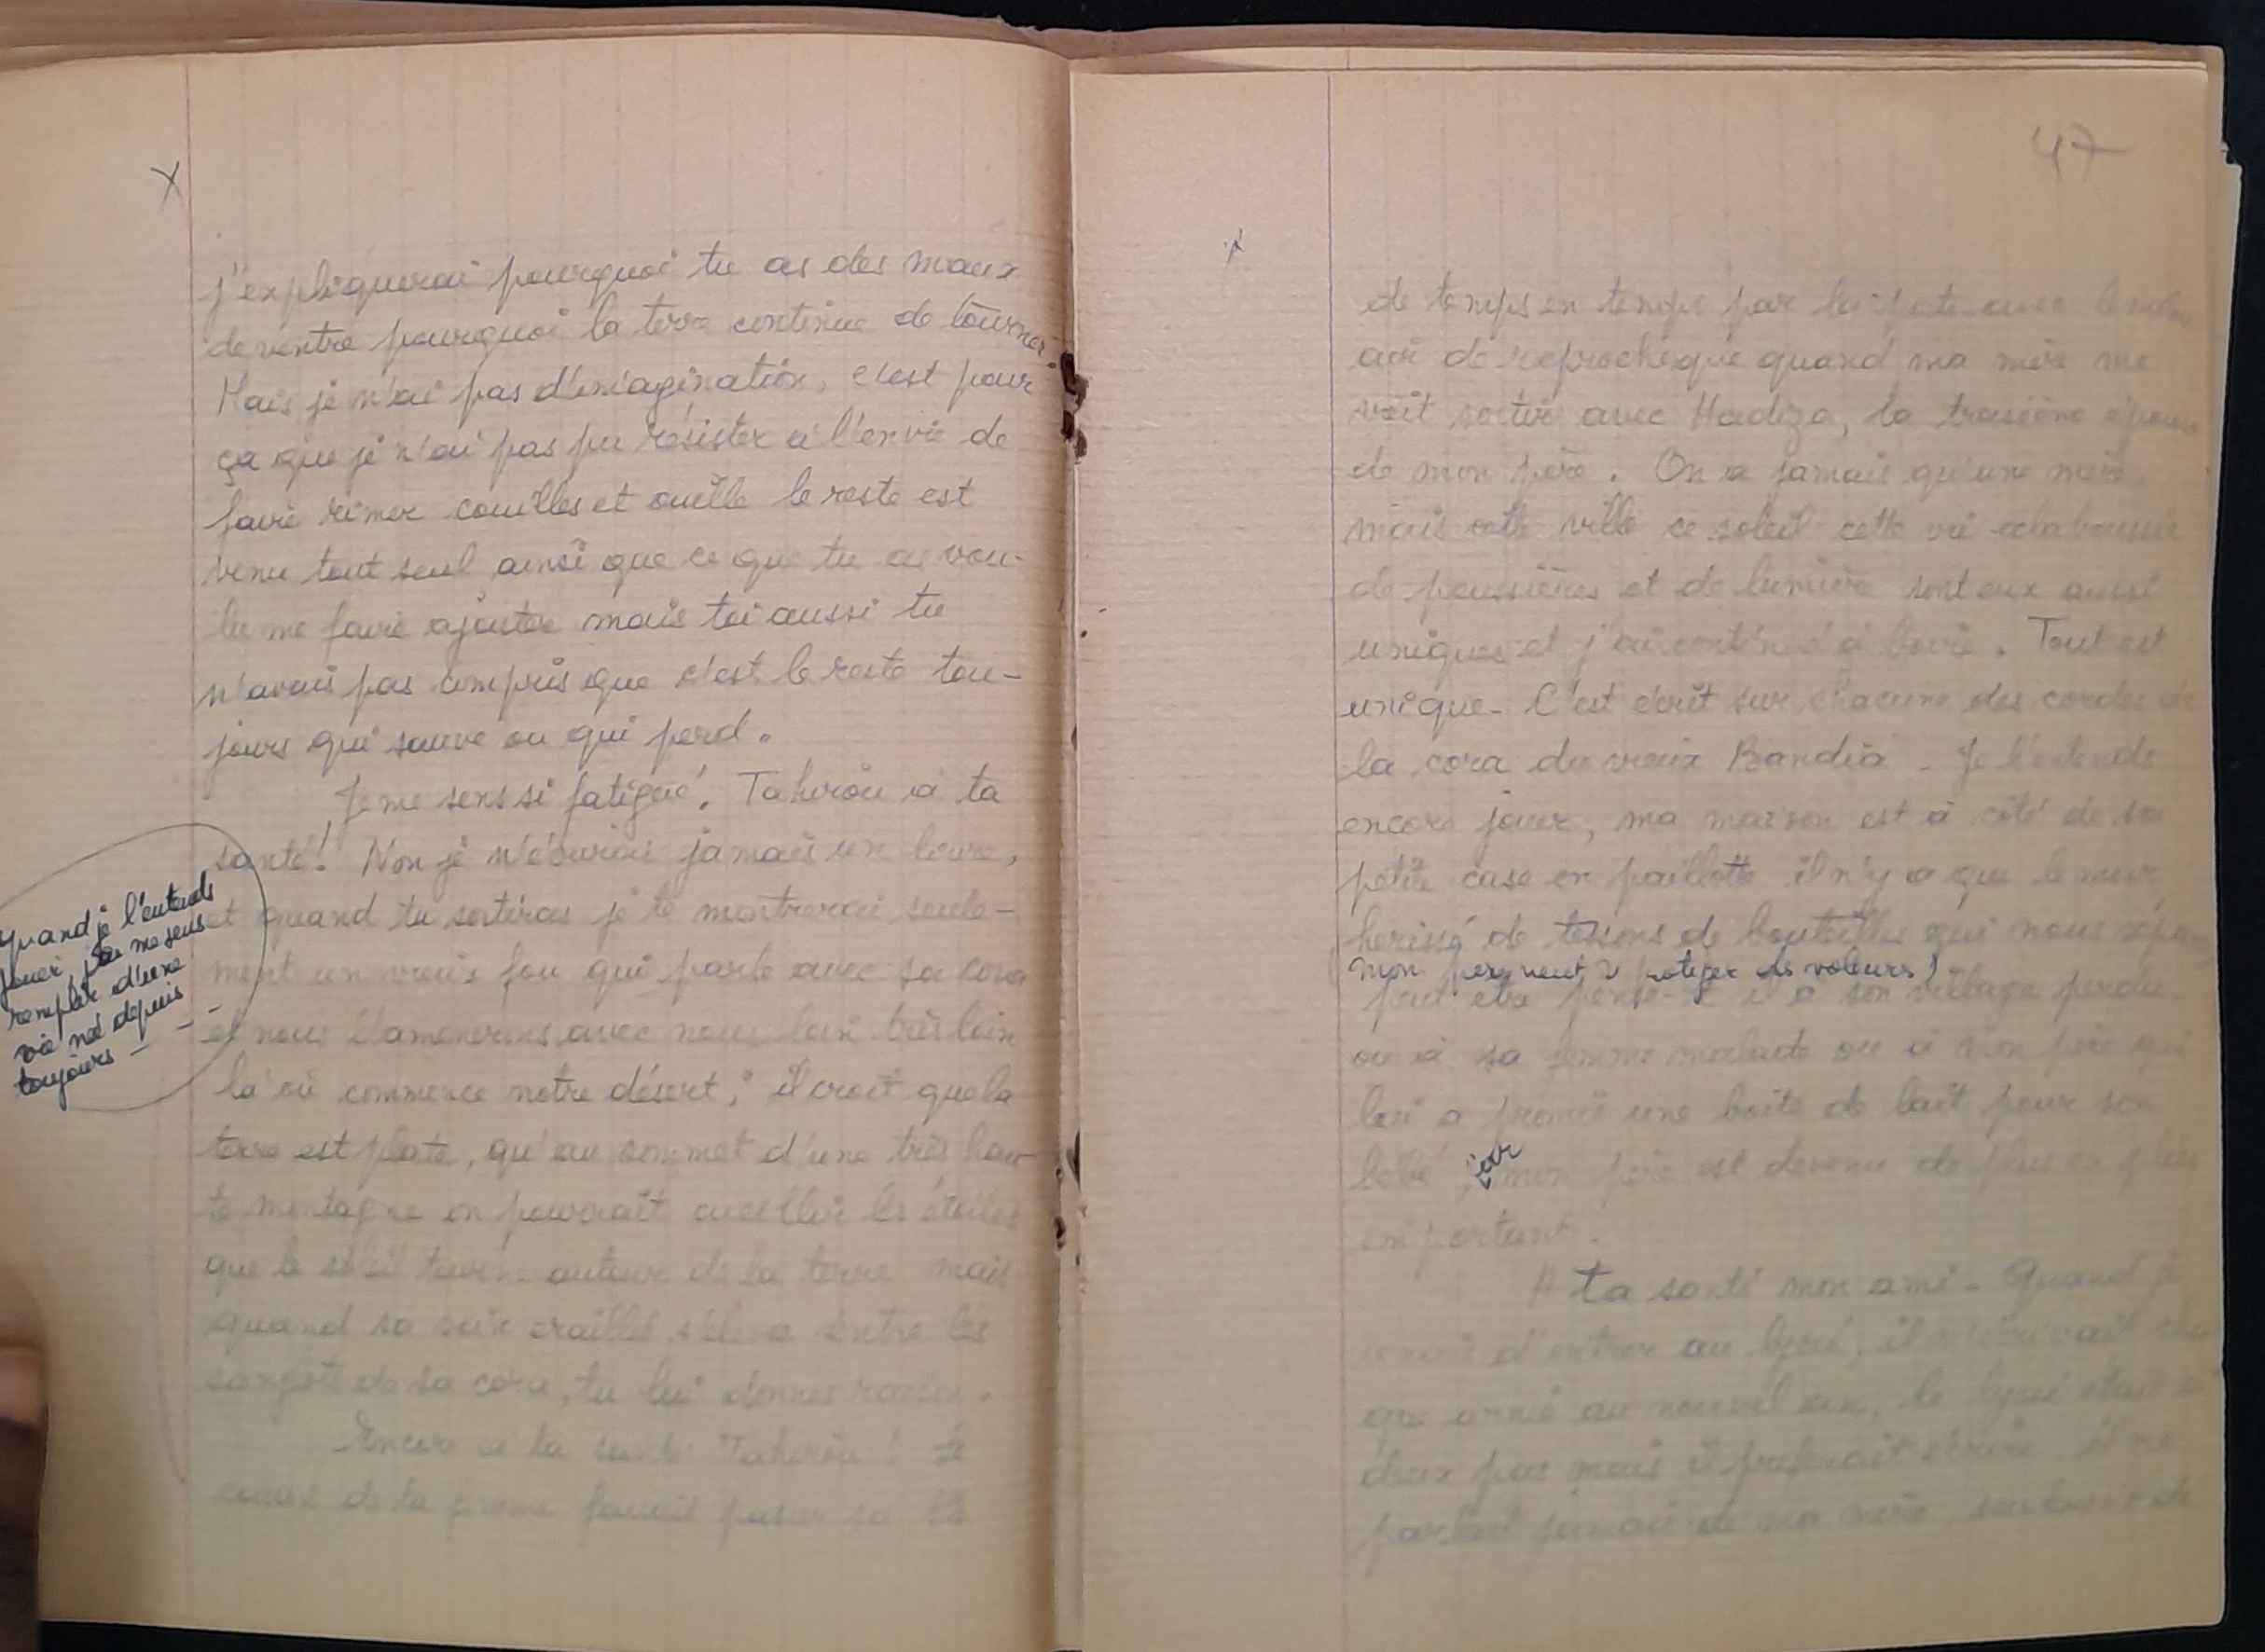 X
j'expliquerai pourquoi tu as des maux
de ventre pourquoi la terre continue de tourner.
Mais je n'ai pas d'imagination, c'est pour
ça que je n'ai pas pu résister à l'envie de
faire rimer couilles et ouille le reste est
venu tout seul ainsi que ce que tu as vou-
lu me faire ajouter mais toi aussi tu
n'avais pas compris que c'est le reste tou-
jours qui sauve ou qui perd.
Je me sens si fatigué! Tahirou à ta
santé! Non je n'écrirai jamais un livre,
et quand tu sortiras je te montrerai seule-
ment un vieux fou qui parle avec sa cora
et nous l'amenerons avec nous loin très loin
là où commence notre désert, il croit que la
terre est plate, qu'au sommet d'une très hau-
te montagne on pourrait cueillir les étoiles
que le soleil tourne autour de la terre mais
quand sa voix eraillée s'élève entre les
sanglots de sa cora, tu lui donnes raison.
Encore à ta santé Tahirou! Le
de la faisait passer sa tête
Quand je l'entends
jouer, je me sens
remplir d'une
vie née depuis
toujours - - -
47
x
de temps en temps par la porte avec le même
air de reproche que quand ma mère me
voit sortir avec Hadiza, la troisième épouse
de mon père. On a jamais qu'une mère,
mais cette ville ce soleil cette vie eclaboussée
de poussières et de lumière sont eux aussi
uniques et j'ai continué à boire. Tout est
unique - C'est écrit sur chacune des cordes de
la cora du vieux Bandia - Je l'entends
encore jouer, ma maison est à côté de sa
petite case en paillotte il n'y a que le mur
herissé de tessons de bouteilles qui nous sépare
mon pere veut se proteger des voleurs)
peut être pense-t-il à son village perdu
ou à sa femme malade ou à mon père qui
lui a promis une boite de lait pour son
bébé, car mon père est devenu de plus en plus
important.
A ta santé mon ami - Quand je
venais d'entrer au lycée, il m'écrivait cha
que année au nouvel an, le lycée était à
deux pas mais il préferait écrire, il ne
parlait jamais de ma mère, seulement de